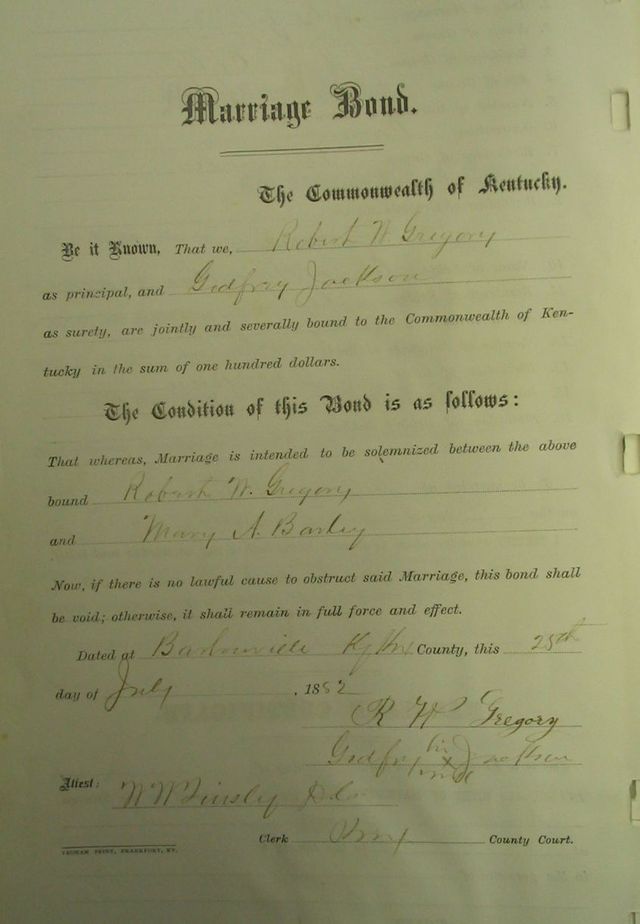 Marriage Bond.
The Commonwealth of Kentucky.
Be it Known, That we, Robert W. Gregory
as principal, and Godfrey Jackson
as surety, are jointly and severally bound to the Commonwealth of Ken-
tucky in the sum of one hundred dollars.
The Condition of this Bond is as follows:
That whereas, Marriage is intended to be solemnized between the above
bound Robert W. Gregory
and Mary A.
Now, if there is no lawful cause to obstruct said Marriage, this bond shall
be void; otherwise, it shall remain in full force and effect.
Dated at Barbourville Ky Knx County, this 25th
day of July, 1882
R W Gregory
Godfrey his x Jackson
mark
Attest:
W W Tinsley
Clerk Knox County Court.
YEOMAN PRINT, FRANKFORT, KY.